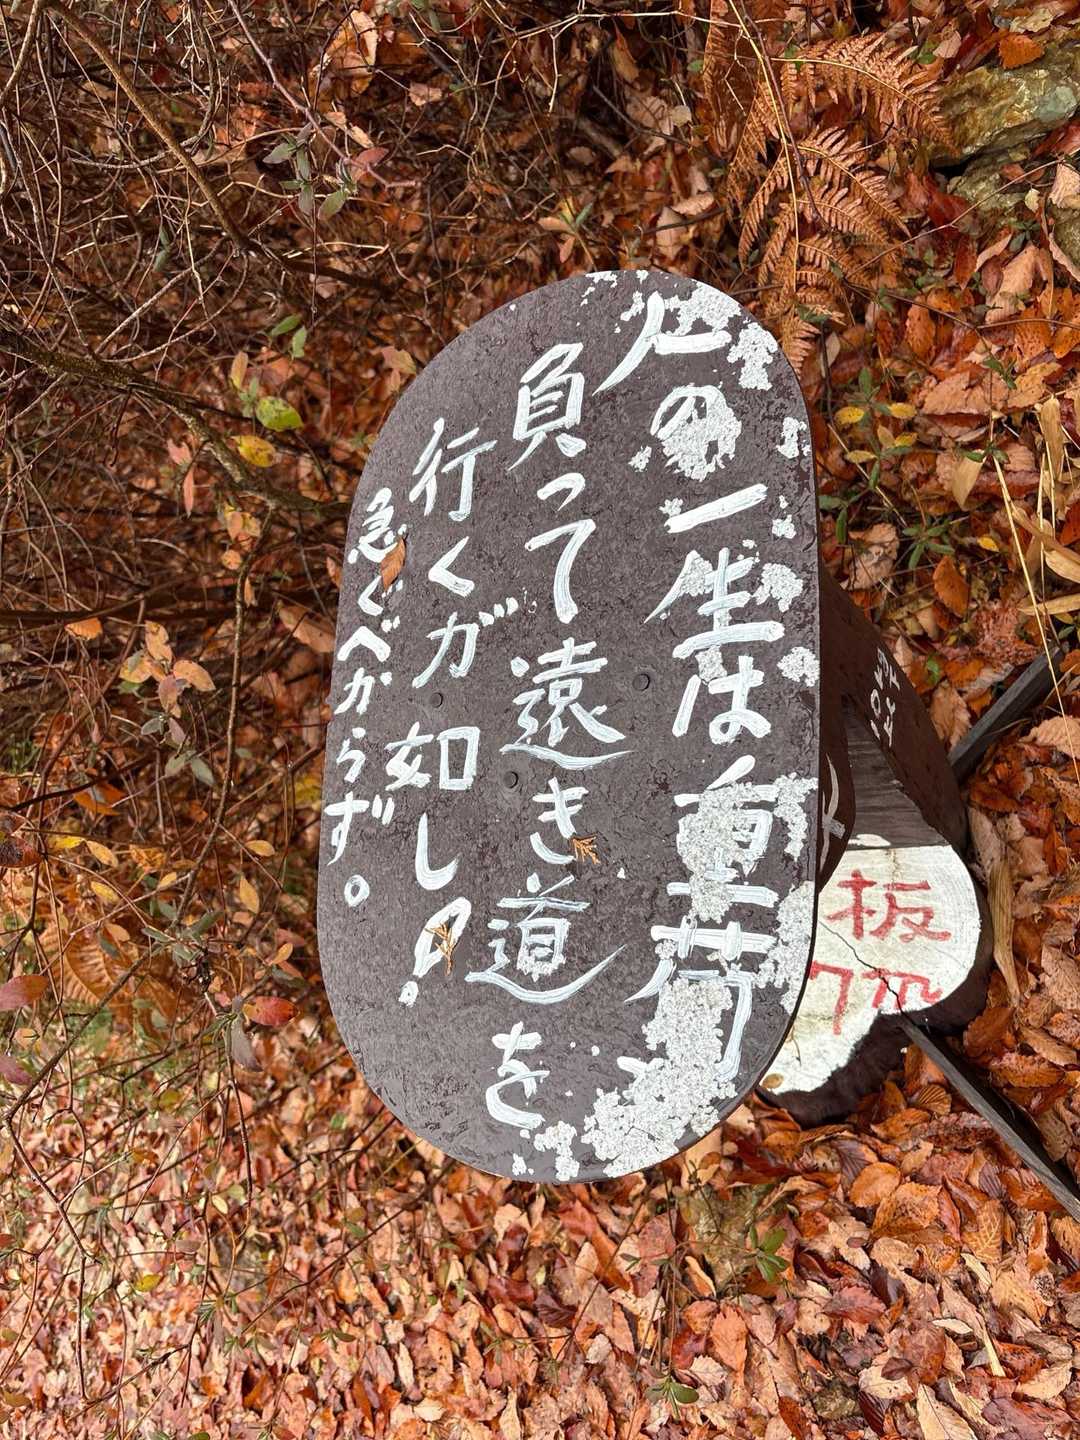 人の一生は重荷
負って遠き道を
行くが如し。
急ぐべからず。
板